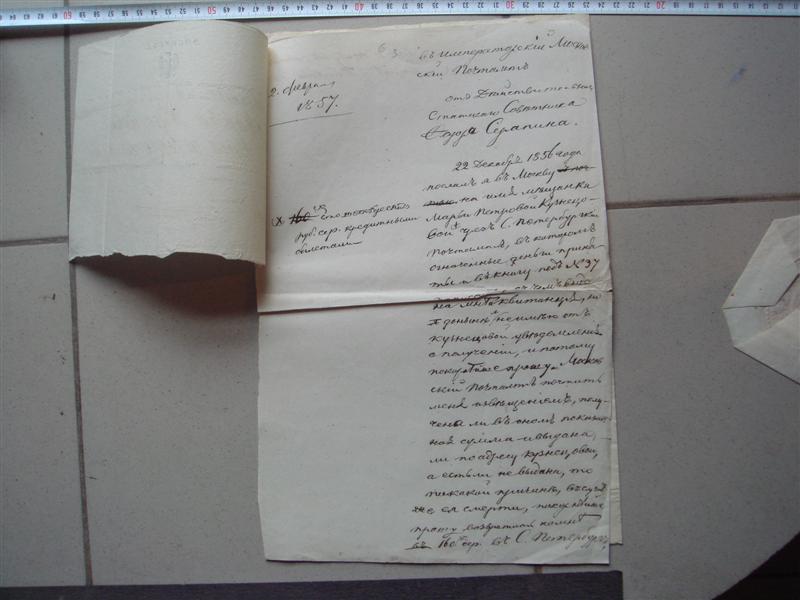 2. Февраля
1857.
въ Императорскій Москов-
скій Почтамтъ
отъ Действительнаго
Статскаго Советника
Федора Серапина.
22 Декабря 1856 года
послалъ я въ Москву
на имя мещанки
Марьи Петровой Кузнецо-
вой чрезъ С. Петербургскій
Почтамтъ, въ которомъ
означенные деньги приня-
ты и въ книгу подъ № 37
на что квитанція, но
и доныне не имею отъ
Кузнецовой уведомленія
о полученіи, и потому
покорнейше прошу Москов-
скій Почтамтъ почтить
меня извещеніемъ, полу-
чена ли въ ономъ показан-
ная сумма и выдана
ли по адресу Кузнецовой,
а естьли не выдана, то
по какой причине, въ случае
же ея смерти, покорнейше
прошу возвратить ко мне
160 сер. въ С. Петербургъ,
руб. сер. кредитными
билетами